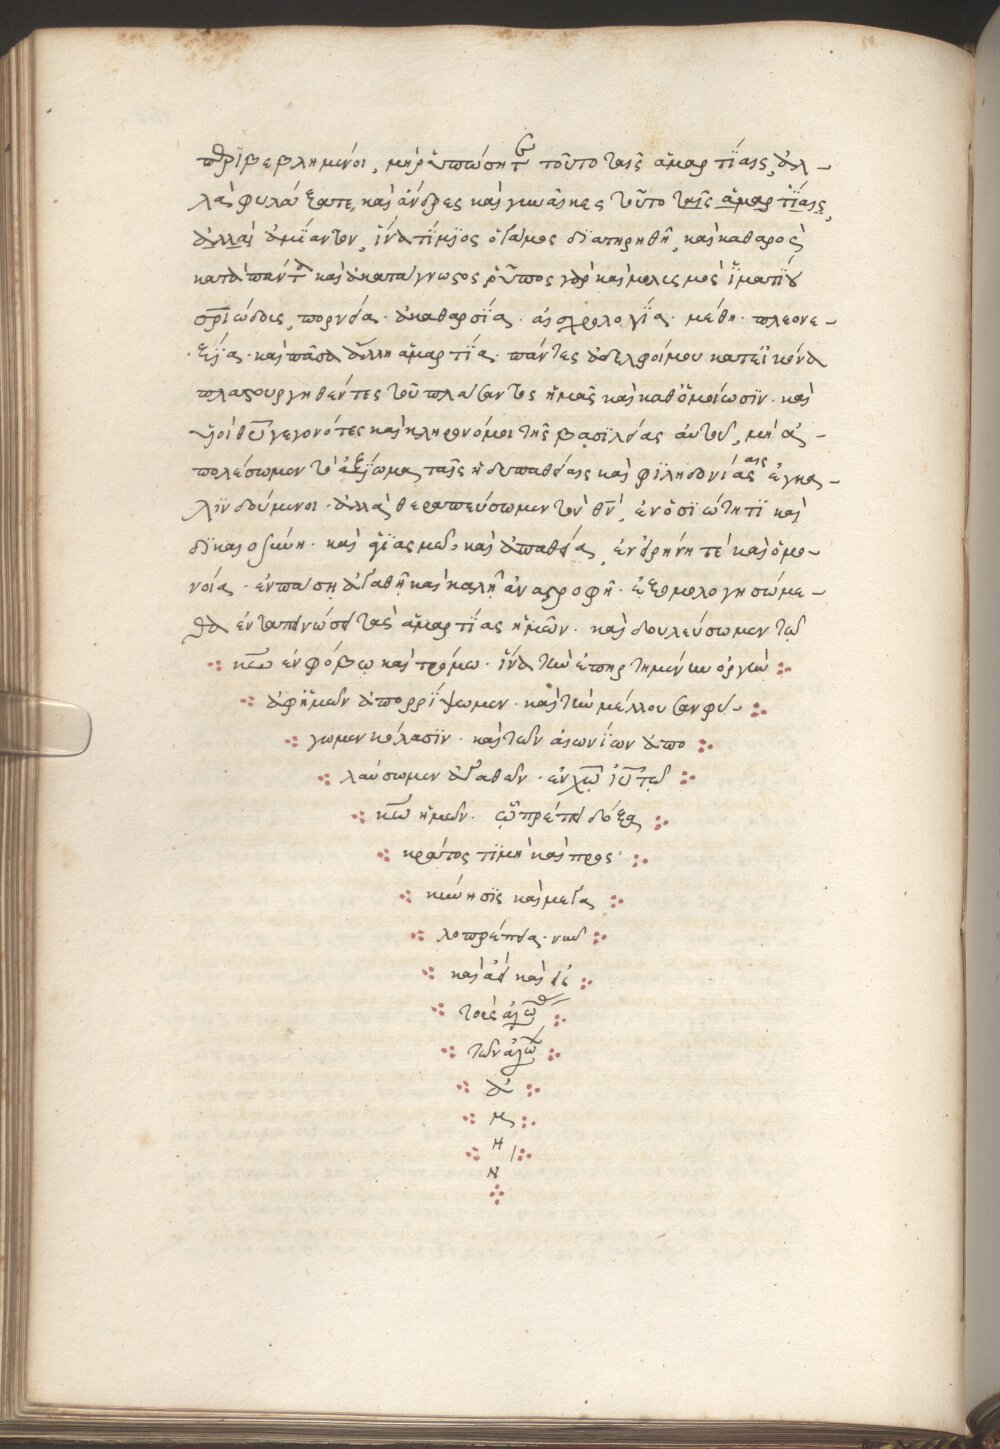 περϊβεβλημένοι, μὴ ῥυπώσητε τοῦτο ταῖς ἁμαρτΐαις, ἀλ-
λὰ φυλάξατε, καὶ ἄνδρες καὶ γυναῖκες τοῦτο ταῖς ἁμαρτΐαις,
ἀλλὰ ἀμΐαντον, ἵνα τΐμιος ὁ γάμος δϊατηρηθῆ, καὶ καθαρὸς
κατὰ πάντα καὶ ἀκατάγνωστος ῥύπος γὰρ καὶ μολυσμὸς ἱματΐου
πνιώδους, πορνεία· ἀκαθαρσΐα· αἰσχρολογΐα· μέθη· πλεονε-
ξΐα· καὶ πᾶσα ἄλλη ἁμαρτΐα· πάντες ἀδελφοί μου κατ εἰκόνα
πλαστουργηθέντες τοῦ πλάσαντος ἡμᾶς καὶ καθ ὁμοίωσϊν· καὶ
υἱοὶ θυ γεγονότες καὶ κληρονόμοι τῆς βασϊλείας αὐτοῦ, μὴ ἀ-
πολέσωμεν τὸ ἀξΐωμα ταῖς ἡδυπαθείαις καὶ φϊληδονίαις ἐγκα-
λϊνδούμενοι· ἀλλὰ θεραπεύσωμεν τὸν θν, ἐν ὁσϊότητϊ καὶ
δϊκαιοσύνη· καὶ ἁγϊασμῶ καὶ ἀπαθεία, ἐν εἰρήνη τε καὶ ὁμο-
νοία· ἐν πάση ἀγαθῆ καὶ καλῆ ἀναστροφῆ· ἐξομολογησώμε-
θα ἐν ταπεινώσει τὰς ἁμαρτΐας ἡμῶν· καὶ δουλεύσωμεν τῶ
κω ἐν φόβω καὶ τρόμω· ἵνα τὴν ἐπηρτημένην ὀργὴν
ἀφ ἡμῶν ἀπορρΐψωμεν· καὶ τὴν μέλλουσαν φύ-
γωμεν κόλασϊν· καὶ τῶν αἰωνΐων ἀπο
λαύσωμεν ἀγαθῶν· ἐν χω ιυ τῶ
κω ἡμῶν· ᾧ πρέπει δόξα
κράτος τϊμὴ καὶ προς
κύνησϊς καὶ μεγα
λοπρέπεια· νῦν
καὶ ἀεὶ καὶ εἰς
τοὺς αἰῶνας
τῶν αἰώνων
ἀ
μ
ὴ
ν